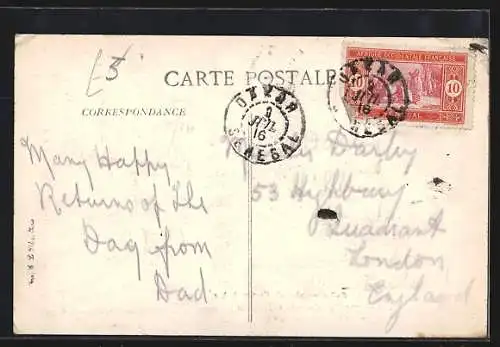 £5
CARTE POSTALE
CORRESPONDANCE
AFRIQUE OCCIDENTALE FRANÇAISE
10 10
DAKAR
9
JUIL
16
SENEGAL
DAKAR
9
16
SENEGAL
Many Happy
Returns of the
Day from
Dad
Darby
53 Highbury
Quadrant
London
England